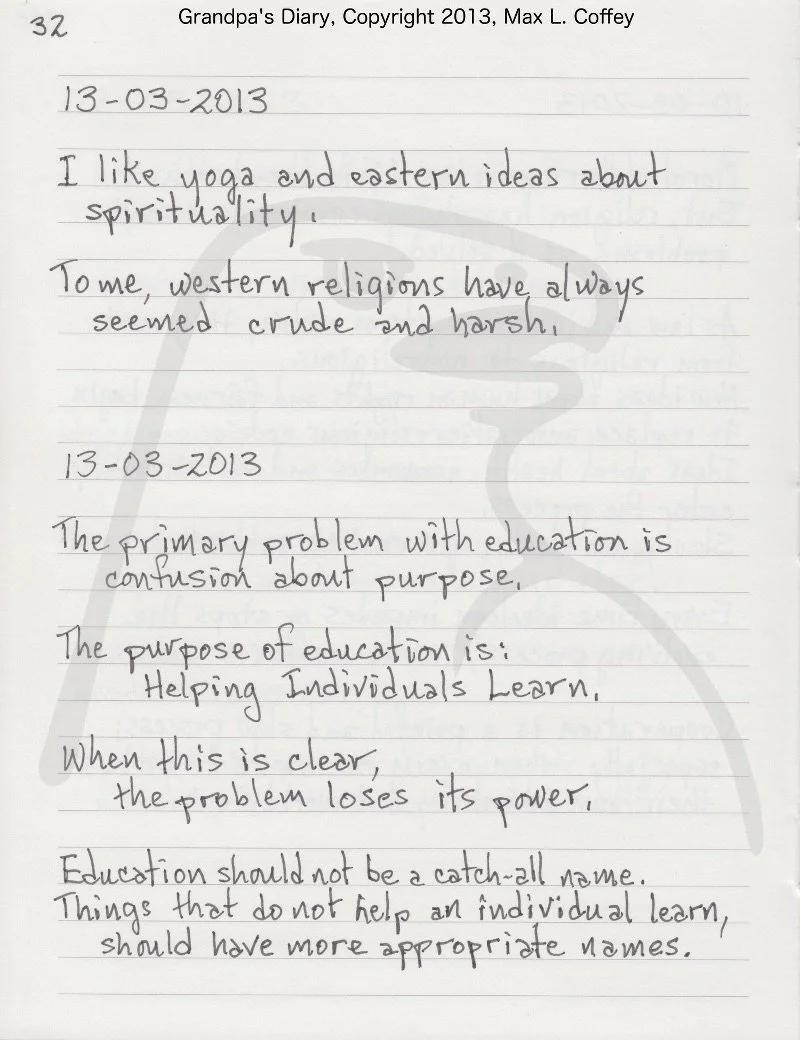 32
Grandpa's Diary, Copyright 2013, Max L. Coffey
13-03-2013
I like yoga and eastern ideas about
spirituality.
To me, western religions have always
seemed crude and harsh.
13-03-2013
The primary problem with education is
confusion about purpose.
The purpose of education is:
Helping Individuals Learn.
When this is clear,
the problem loses its power.
Education should not be a catch-all name.
Things that do not help an individual learn,
should have more appropriate names.